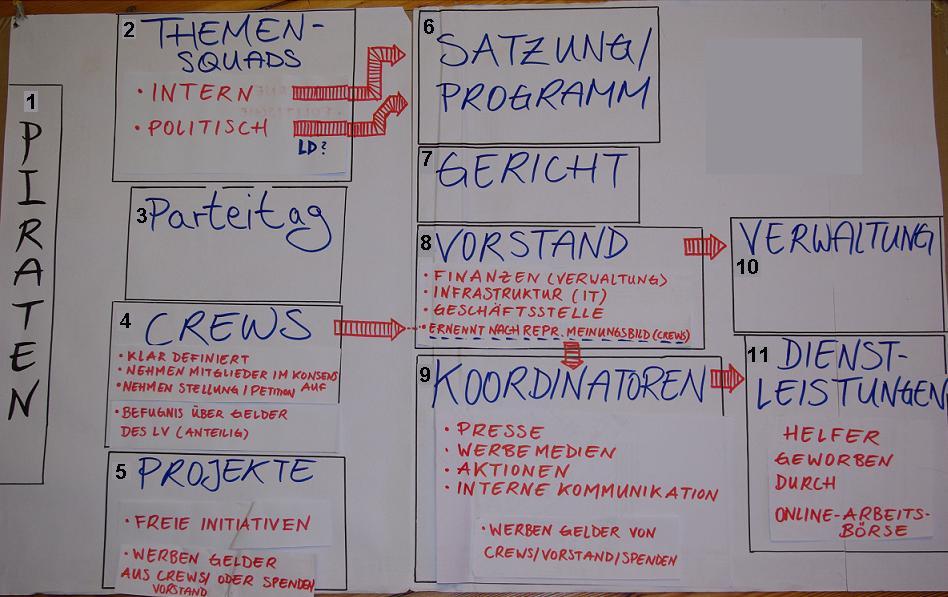 1
PIRATEN
2
THEMEN-
SQUADS
· INTERN
· POLITISCH
LD?
3
Parteitag
4
CREWS
· KLAR DEFINIERT
· NEHMEN MITGLIEDER IM KONSENS AUF
· NEHMEN STELLUNG / PETITION
· BEFUGNIS ÜBER GELDER
DES LV (ANTEILIG)
5
PROJEKTE
· FREIE INITIATIVEN
· WERBEN GELDER
AUS CREWS/ ODER SPENDEN
VORSTAND
6
SATZUNG/
PROGRAMM
7
GERICHT
8
VORSTAND
· FINANZEN (VERWALTUNG)
· INFRASTRUKTUR (IT)
· GESCHÄFTSSTELLE
· ERNENNT NACH REPR. MEINUNGSBILD (CREWS)
9
KOORDINATOREN
· PRESSE
· WERBEMEDIEN
· AKTIONEN
· INTERNE KOMMUNIKATION
· WERBEN GELDER VON
CREWS/VORSTAND/SPENDEN
VERWALTUNG
10
11
DIENST-
LEISTUNGEN
HELFER
GEWORBEN
DURCH
ONLINE-ARBEITS-
BÖRSE